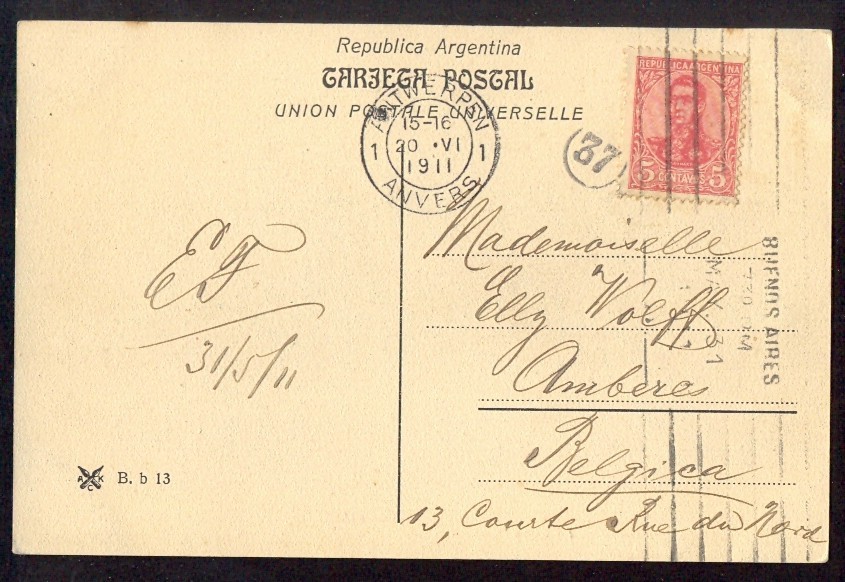 Republica Argentina
TARJETA POSTAL
UNION POSTALE UNIVERSELLE
REPUBLICA ARGENTINA
5 CENTAVOS 5
37
ANTWERPEN
15-16
1 20 · VI 1
1911
ANVERS
BUENOS AIRES
7 30 PM
MAY 31
Mademoiselle
Elly Wolff
Amberes
Belgica
13, Courte Rue du Nord
EF
31/5/11
B. b 13